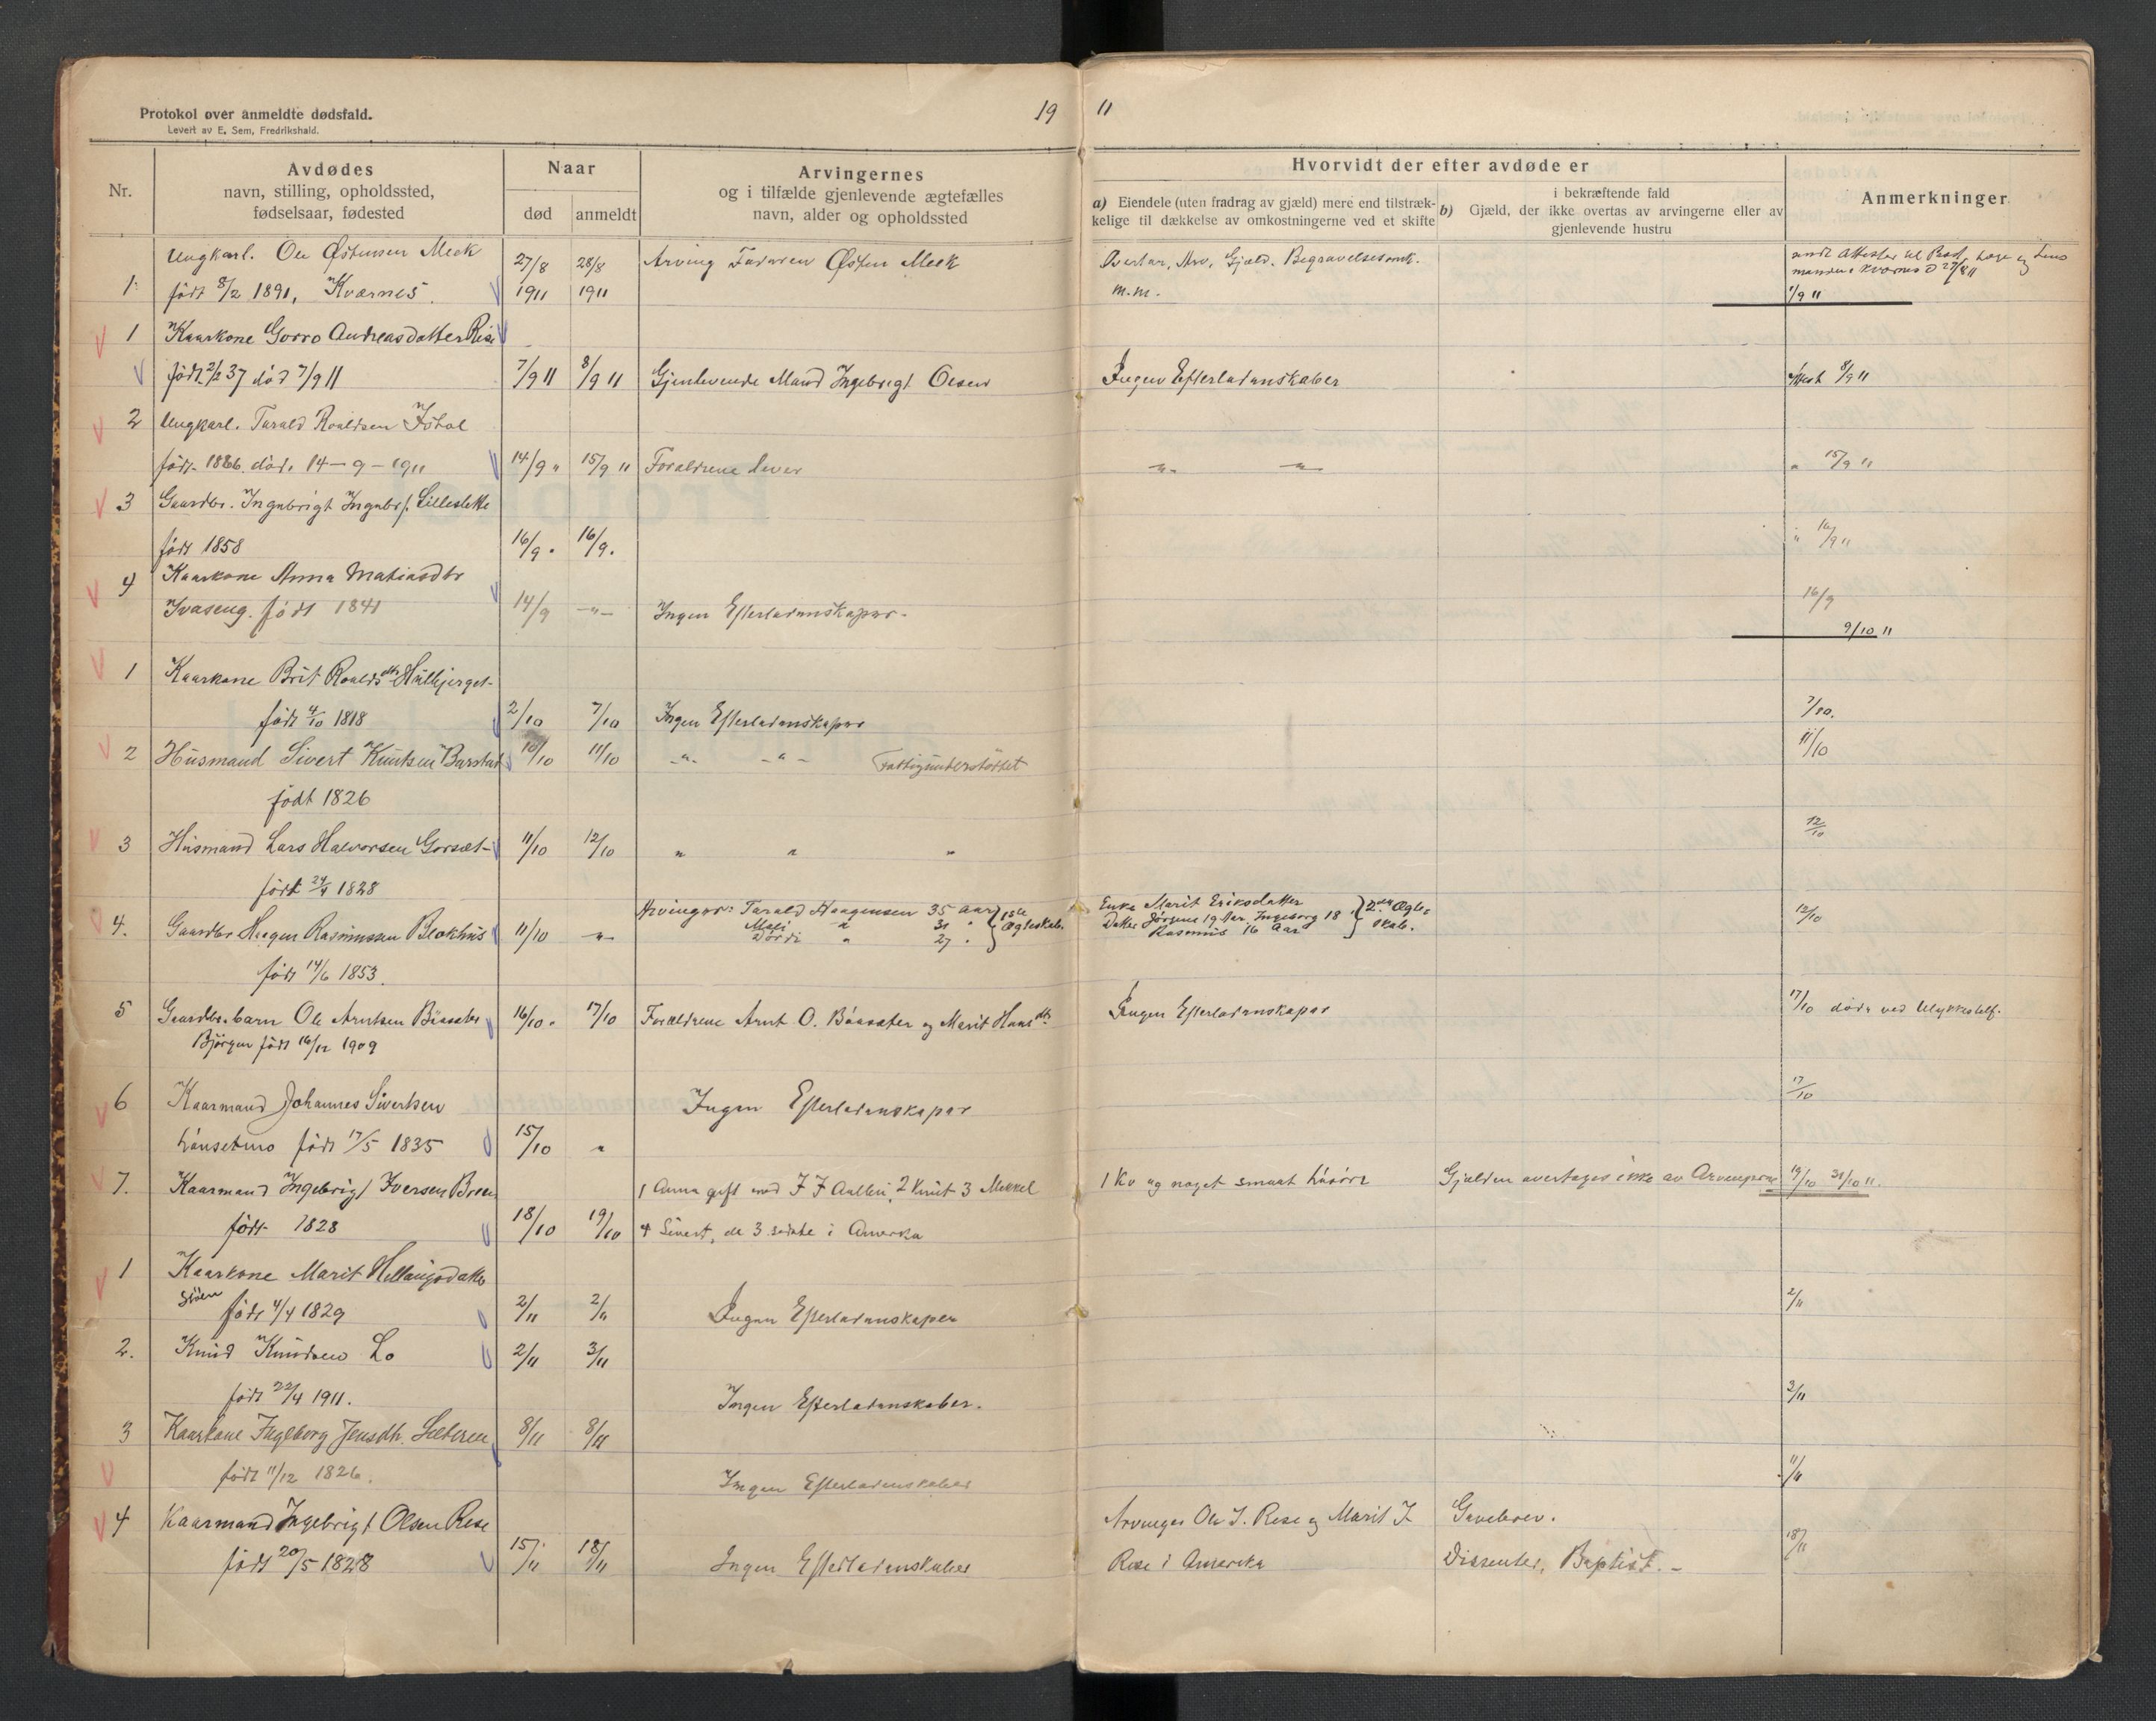 Protokol over anmeldte dødsfald.
Levert av E. Sem, Fredrikshald.
19 11
Nr.
Avdødes
navn, stilling, opholdssted,
fødselsaar, fødested
Naar
død
anmeldt
Arvingernes
og i tilfælde gjenlevende ægtefælles
navn, alder og opholdssted
Hvorvidt der efter avdøde er
a) Eiendele (uten fradrag av gjæld) mere end tilstræk-
kelige til dækkelse av omkostningerne ved et skifte
i bekræftende fald
b) Gjæld, der ikke overtas av arvingerne eller av
gjenlevende hustru
Anmerkninger
Ungkarl. Ole Østensen Meek 27/8 28/8 Arving Faderen Østen Meek
Overtar, Arv, Gjæld. Begravelsesomk.
1. født 8/2 1891, Kværnes. 1911 1911
m.m.
1/9 11
1 Kaarkone Gorro Andreasdatter Rise
født 2/2 37 død 7/9 11 7/9 11 8/9 11 Gjenlevende Mand Ingebrigt Olsen
Ingen Efterladenskaber
Attest 8/9 11
2 Ungkarl. Tarald Roaldsen
født 1886. død. 14-9-1911 14/9 " 15/9 11 Foraldrene lever
-"- -"-
" 15/9 11
3 Gaardbr. Ingebrigt Ingebr. Lilleslette
født 1858 16/9 . 16/9.
" 16/9 11
4 Kaarkone Anna Matiasdtr
Ivaseng. født 1841 14/9 -"- Ingen Efterladenskaper.
16/9
9/10 11
1 Kaarkone Brit Roaldsdtr
født 4/10 1818 2/10 7/10 Ingen Efterladenskaper
7/10.
2 Husmand Sivert Knutsen Barstad 10/10 11/10 -"- -"- Fattigunderstöttet
11/10
født 1826
12/10
3 Husmand Lars Halvorsen Gorset 11/10 12/10 " " "
født 24/4 1828
Arvinger: Tarald Haagensen 35 Aar 1ste
Mali " 31 " Ægteskab.
Dordi " 27 "
Enke Marit Eriksdatter 2det Ægte-
Datter Jörgine 19 Aar, Ingeborg 18 skab.
Rasmus 16 Aar
4. Gaardbr Haagen Rasmussen Blokhus 11/10 -"-
12/10
født 14/6 1853.
5 Gaardbr. barn Ole Arntsen Bäasæter 16/10. 17/10 Forældrene Arnt O. Bäasæter og Marit Hansdtr
Ingen Efterladenskaper
17/10 døde ved Ulykkestilf.
Björgen født 16/12 1909
6 Kaarmand Johannes Sivertsen Ingen Efterladenskaper
17/10
født 17/5 1835 15/10 "
7. Kaarmand Ingebrigt Iversen Breen 1 Anna gift med I I Aalbu, 2 Knut 3 Mekkel
1 Ku og noget smaat
Gjælden overtages ikke av Arvingerne
19/10 31/10 11.
født 1828 18/10 19/10 4 Sivert, de 3 sidste i Amerka
1 Kaarkone Marit
født 4/4 1829 2/11 2/11 Ingen Efterladenskaper
2/11
2. Knud Knudsen Lo 2/11 3/11
født 22/4 1911. Ingen Efterladenskaber.
3/11
3 Kaarkone Ingeborg Jensdtr. Sæteren 8/11 8/11
født 11/12 1826. Ingen Efterladenskaber
4 Kaarmand Ingebrigt Olsen Rise
Arvinger Ole I. Rise og Marit I.
Gavebrev.
18/11
født 20/5 1828 15/11 18/11 Ingen Efterladenskaber
Rise i Amerika
Dissenter, Baptist.-